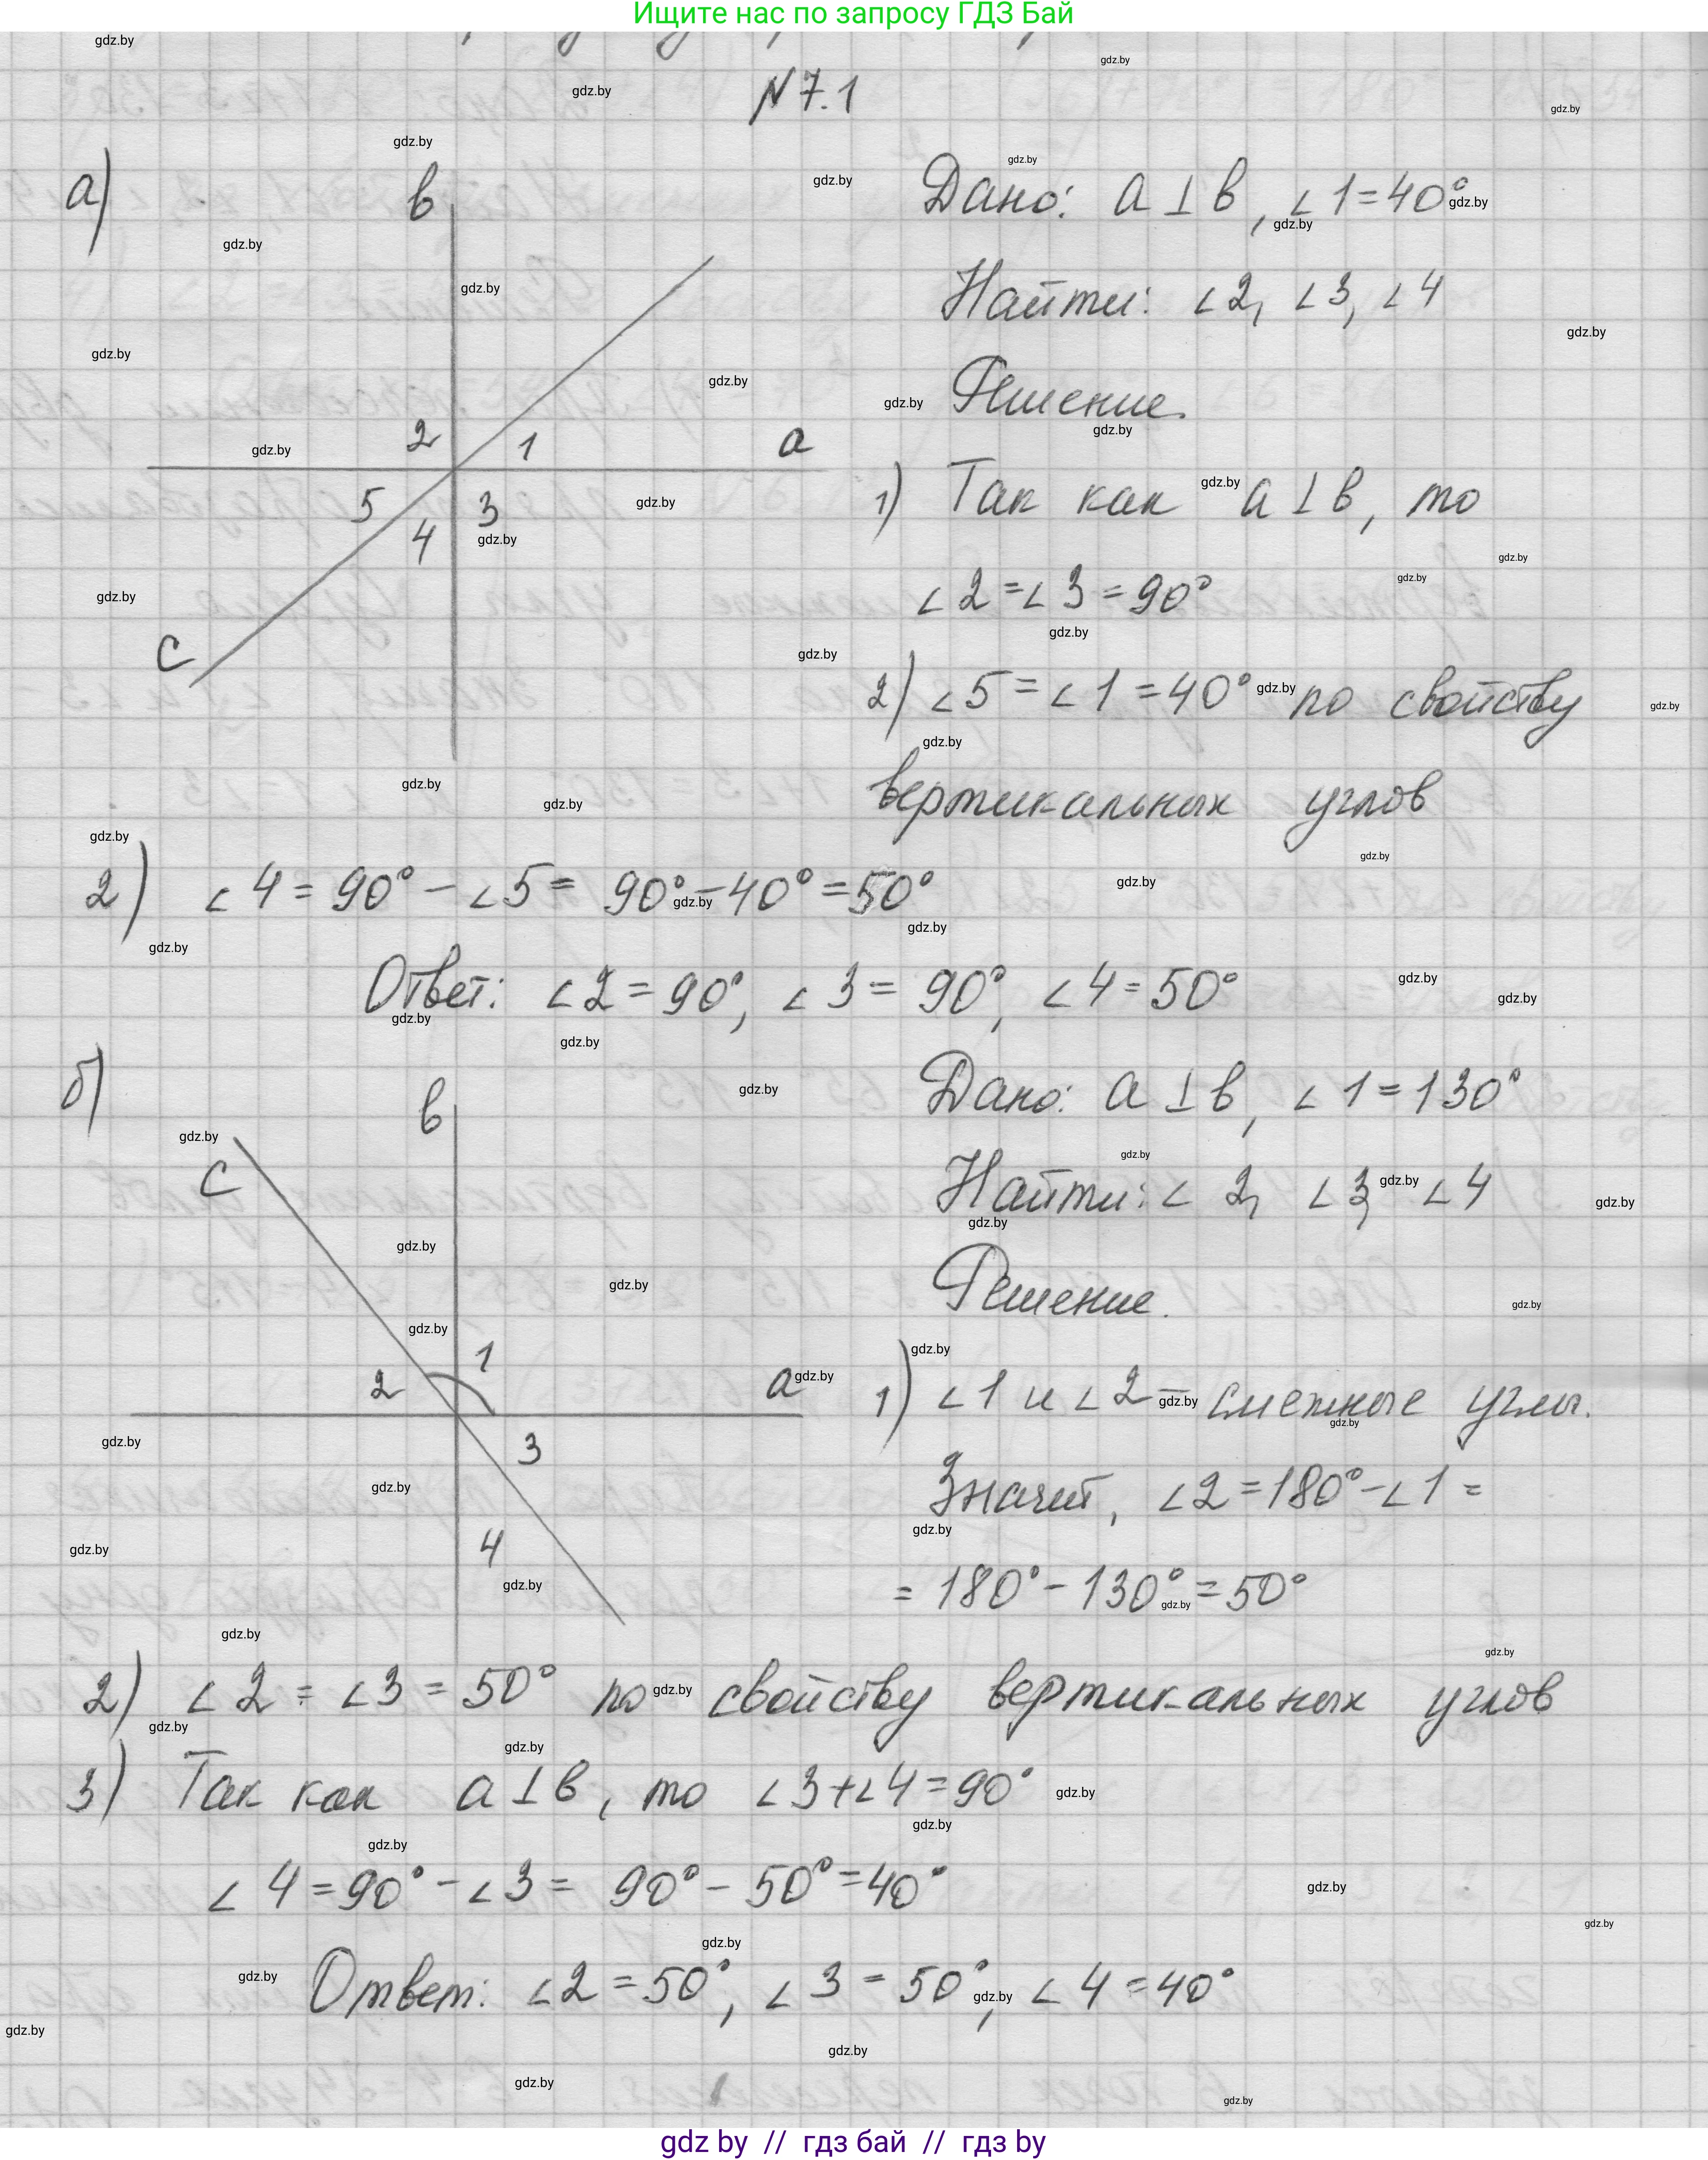 Ищите нас по запросу ГДЗ Бай
N 7.1
а)
в
2
1
а
5
4
3
с
Дано: а ⊥ в, ∠1=40°
Найти: ∠2, ∠3, ∠4
Решение.
1) Так как а ⊥ в, то
∠2=∠3=90°
2) ∠5=∠1=40° по свойству
вертикальных углов
2) ∠4=90°-∠5= 90°-40°=50°
Ответ: ∠2=90°, ∠3=90°, ∠4=50°
б)
в
с
1
2
а
3
4
Дано: а ⊥ в, ∠1=130°
Найти: ∠2, ∠3, ∠4
Решение.
1) ∠1 и ∠2 - смежные углы.
Значит, ∠2=180°-∠1=
= 180°-130°=50°
2) ∠2=∠3=50° по свойству вертикальных углов
3) Так как а ⊥ в, то ∠3+∠4=90°
∠4=90°-∠3= 90°-50°=40°
Ответ: ∠2=50°, ∠3=50°, ∠4=40°
gdz by // гдз бай // гдз by